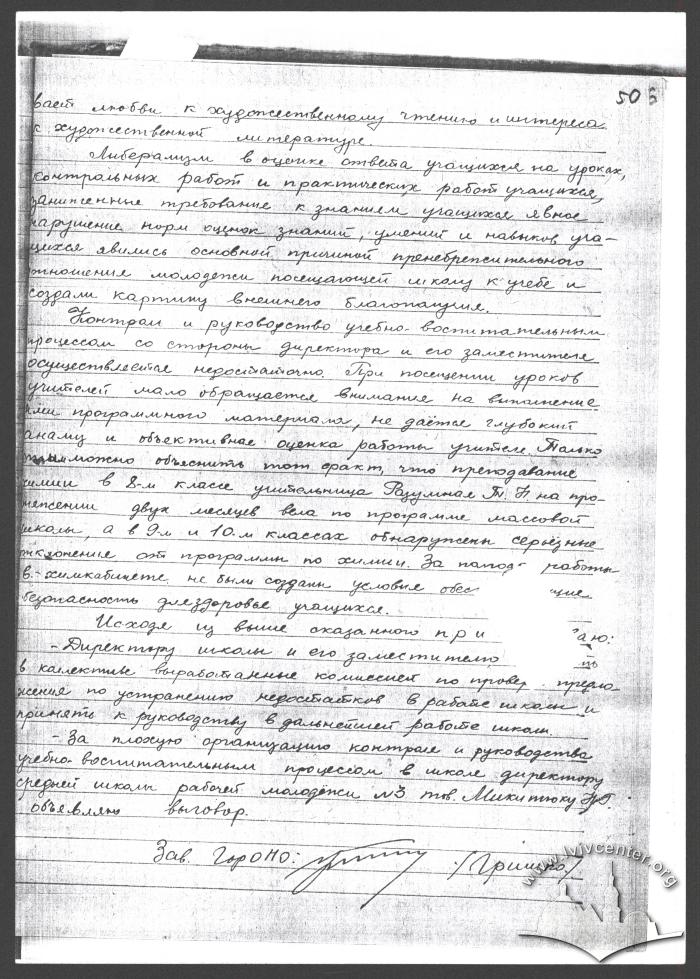 50
вает любви к художественному чтению и интереса
к художественной литературе.
Либерализм в оценке ответа учащихся на уроках,
контрольных работ и практических работ учащихся,
заниженные требование к знанием учащихся явное
нарушение норм оценок знаний, умений и навыков уча-
щихся явились основной причиной пренебрежительного
отношения молодежи посещающей школу к учебе и
создали картину внешнего благополучия.
Контрол и руководство учебно-воспитательным
процессом со стороны директора и его заместителе
осуществляется недостаточно. При посещении уроков
учителей мало обращается внимания на выполнение
ими программного материала, не даётся глубокий
анализ и объективное оценка работы учителе. Только
можно объяснить тот факт, что преподавание
химии в 8-м классе учительница Разумная Т. Н на про-
тяжении двух месяцев вела по программе массовой
школы, а в 9-м и 10-м классах обнаружены серьёзные
отклонение от программы по химии. За работы
в химкабинете не были созданы условия обес щие
безопасность для здоровье учащихся.
Исходя из выше сказанного при аю:
- Директору школы и его заместителю
в коллективе выработанные комиссией по провер. предло-
жения по устранению недостатков в работе школы и
принять к руководству в дальнейшей работе школы.
- За плохую организацию контроле и руководства
учебно-воспитательным процессом в школе директору
средней школы рабочей молодёжи №3 тов. Микитюку Н.Г.
объявляю выговор.
Зав. ГорОНО: /Гришко/
www.lvivcenter.org